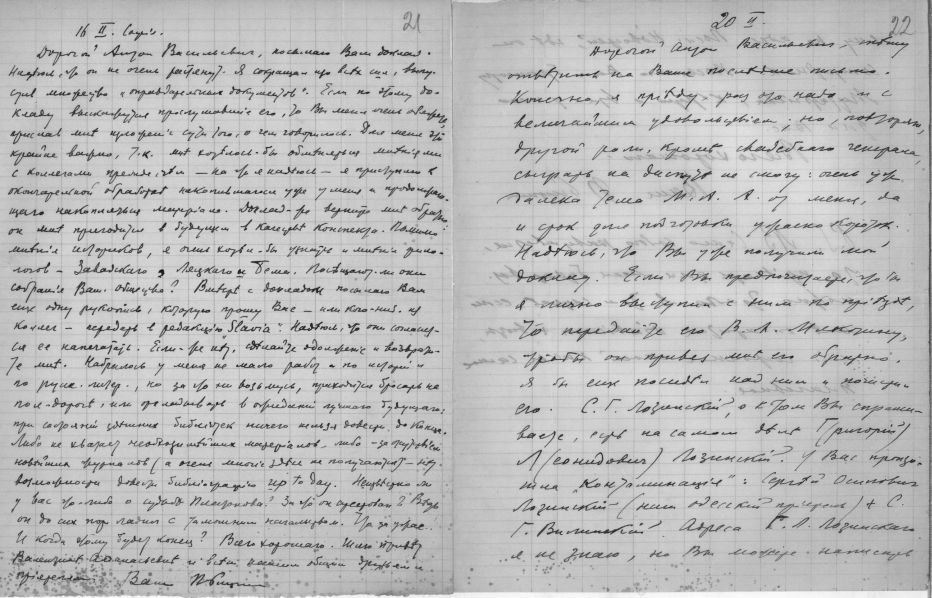 21
16 II. София.
Дорогой Антон Васильевич, посылаю Вам доклад.
Надеюсь, что он не очень растянут. Я сокращал изо всех сил, выпу-
стив множество "оправдательных документов". Если по этому до-
кладу выскажутся прослушавшие его, то Вы меня очень обяжете,
прислав мне изложение сути того, о чем говорилось. Для меня это
крайне важно, т.к. мне хотелось бы обменяться мнениями
с коллегами прежде, чем – на что я надеюсь – я приступлю к
окончательной обработке накопившегося уже у меня и продолжаю-
щего накопляться материала. Доклад-же верните мне обратно:
он мне пригодится в будущем в качестве конспекта. Помимо
мнения историков, я очень хотел-бы узнать и мнения фило-
логов – Завадского, Ляцкого и Бема. Посещают-ли они
собрания Ваш. общества? Вместе с докладом посылаю Вам
еще одну рукопись, которую прошу Вас – или кого-ниб. из
коллег – передать в редакцию Slavia. Надеюсь, что они согласят-
ся ее напечатать. Если-же нет, сделайте одолжение и возврати-
те мне. Набралось у меня не мало работ и по истории и
по русск. литер., но за что ни возьмусь, приходится бросать на
пол-дороге, или откладывать в ожидании лучшего будущего:
при состоянии здешних библиотек ничего нельзя довести до конца.
Либо не хватает необходимейших материалов, либо – за отсутствием
новейших журналов (а очень многие здесь не получаются) – нет
возможности довести библиографию up to day. Неизвестно ли
у вас что-либо о судьбе Платонова? За что он арестован? Ведь
он до сих пор ладил с тамошним начальством. Что за ужас!
И когда этому будет конец? Всего хорошего. Шлю привет
Валентине Афанасьевне и всем нашим общим друзьям и
приятелям. Ваш П. Бицилли
22
20 II.
Дорогой Антон Васильевич, спешу
ответить на Ваше последнее письмо.
Конечно, я приеду раз это надо и с
величайшим удовольствием; но, повторяю,
другой роли, кроме свадебного генерала,
сыграть на диспуте не смогу: очень уж
далека тема М. А. А. от меня, да
и срок для подготовки ужасно короток.
Надеюсь, что Вы уже получили мой
доклад. Если Вы предпочитаете, чтобы
я лично выступил с ним по приезде,
то передайте его В. А. Мякотину,
чтобы он привез мне его обратно.
Я бы еще посидел над ним и почистил
его. С. Г. Лозинский, о котом Вы спраши-
ваете, есть на самом деле Г(ригорий)
Л(еонидович) Лозинский. У Вас произо-
шла "контаминация": Сергей Осипович
Лозинский (наш одесский приятель) + С.
Г. Вилинский. Адреса Г. Л. Лозинского
я не знаю, но Вы можете написать